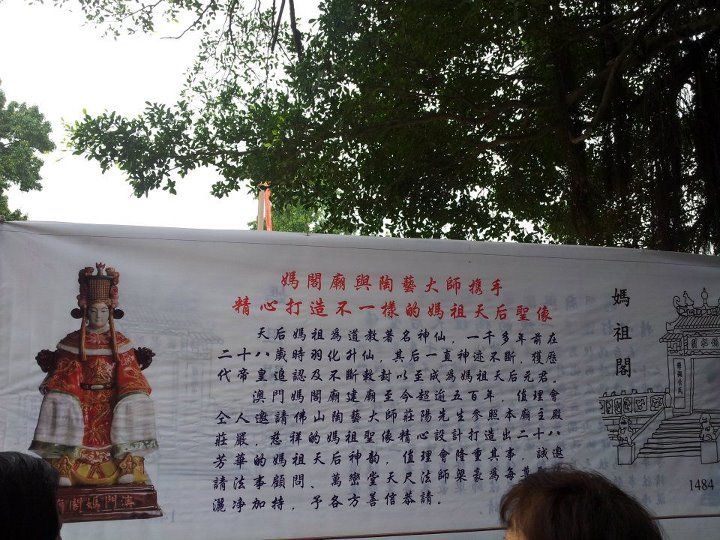 媽閣廟與陶藝大師携手
精心打造不一樣的媽祖天后聖像
天后媽祖為道教著名神仙，一千多年前在
二十八歲時羽化升仙，其后一直神迹不斷，獲歷
代帝皇追認及不斷敕封以至成為媽祖天后元君。
澳門媽閣廟建廟至今超近五百年，值理會
仝人邀請佛山陶藝大師莊陽先生參照本廟主殿
莊嚴，慈祥的媽祖聖像精心設計打造出二十八
芳華的媽祖天后神韵，值理會隆重其事，誠邀
請法事顧問、萬巒堂天尺法師梁豪為每
灑净加持，予各方善信恭請。
媽祖閣
1484
澳門媽閣廟